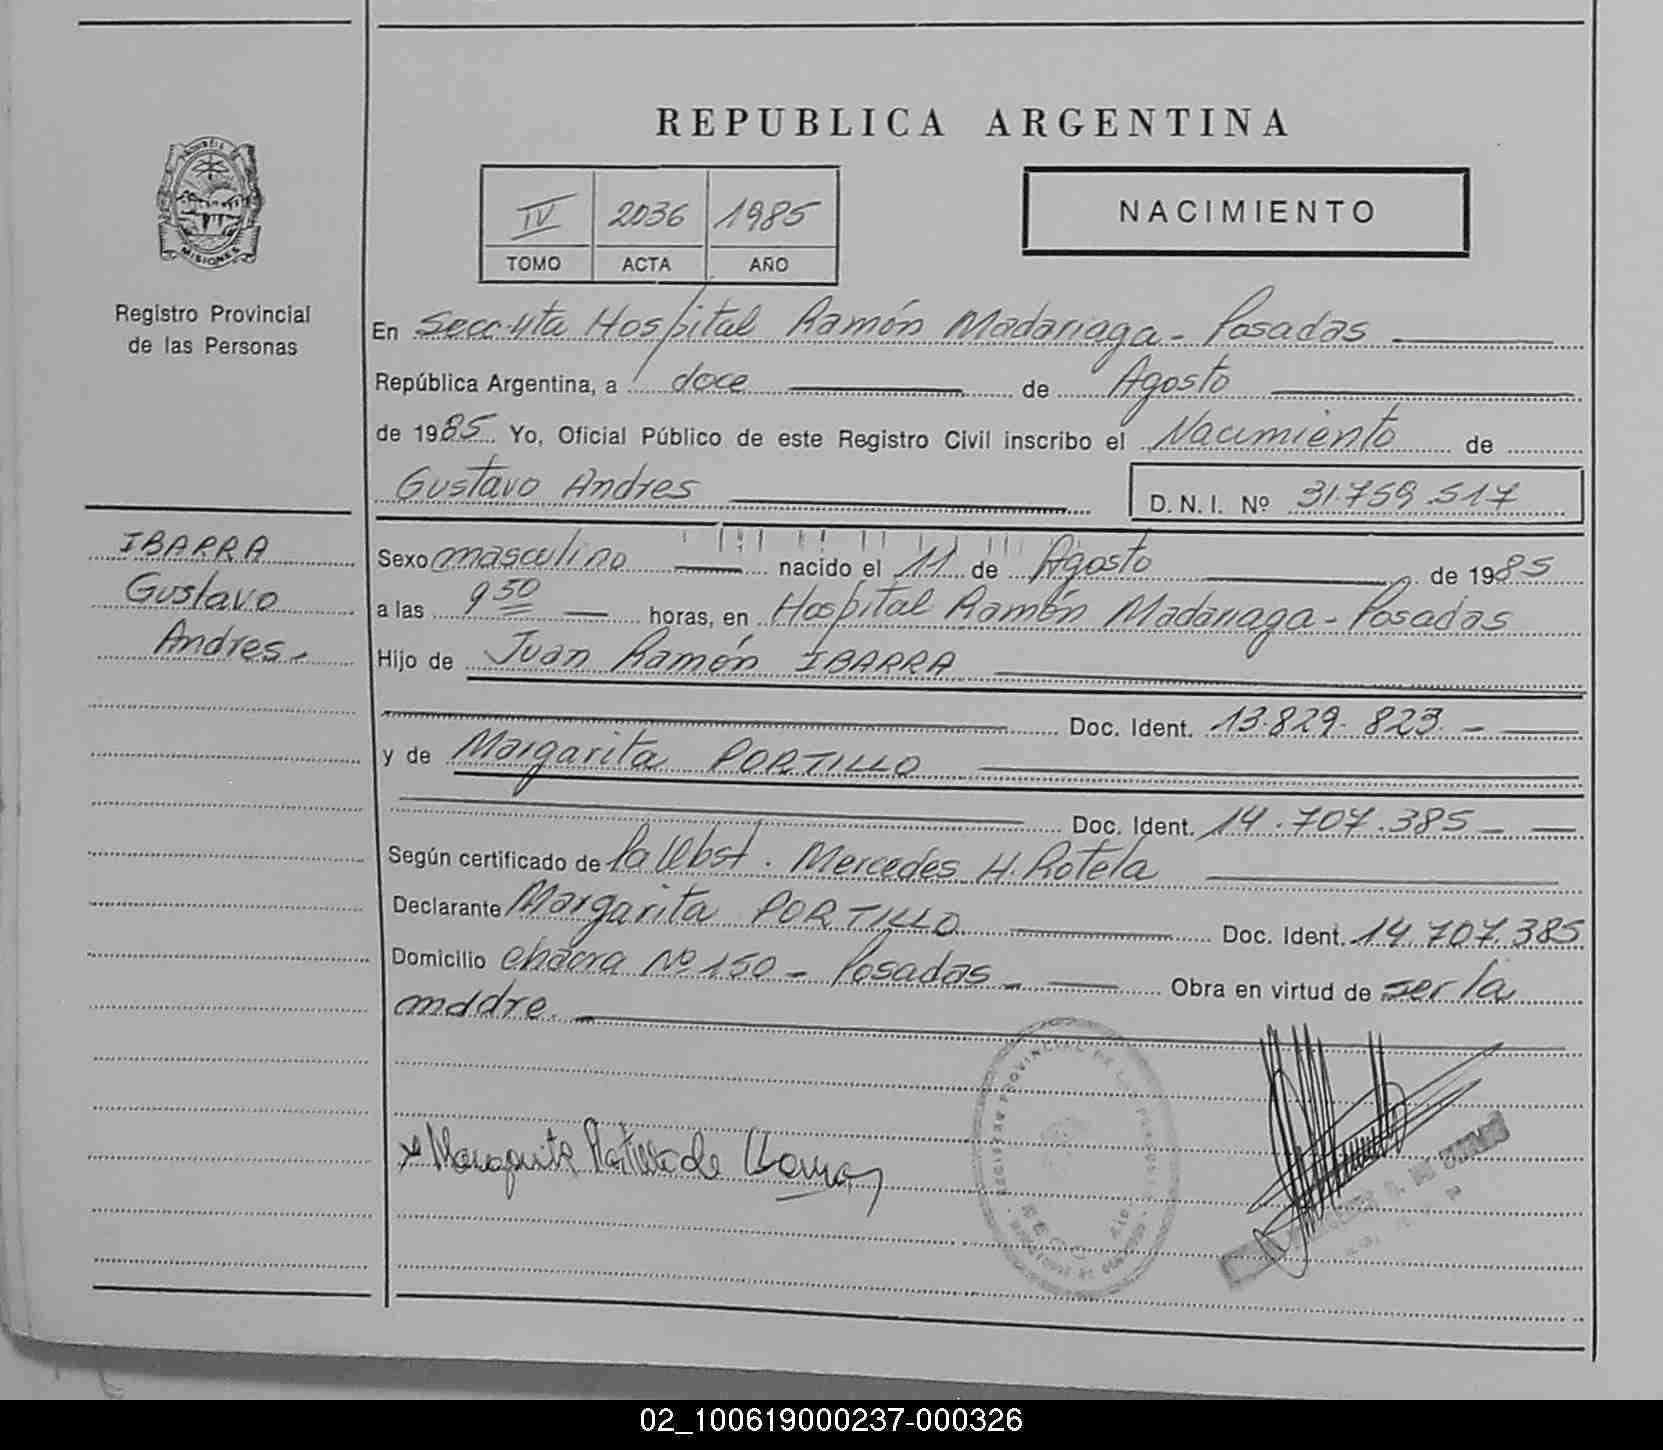 REPUBLICA ARGENTINA
PROVINCIA DE
MISIONES
Registro Provincial
de las Personas
IV 2036 1985
TOMO ACTA AÑO
NACIMIENTO
En Secc. 4ta Hospital Ramón Madariaga - Posadas
República Argentina, a doce de Agosto
de 1985 Yo, Oficial Público de este Registro Civil inscribo el Nacimiento de
Gustavo Andres D.N.I. Nº 31.759.517
IBARRA
Gustavo
Andres.-
Sexo masculino nacido el 11 de Agosto de 1985
a las 9 50 horas, en Hospital Ramón Madariaga - Posadas
Hijo de Juan Ramón IBARRA
Doc. Ident. 13.829.823.-
y de Margarita PORTILLO
Doc. Ident. 14.707.385 -
Según certificado de la Obst. Mercedes H. Rotela
Declarante Margarita PORTILLO Doc. Ident. 14.707.385
Domicilio chacra Nº 150 - Posadas - Obra en virtud de ser la
madre.
REGISTRO PROVINCIAL DE LAS PERSONAS
02_100619000237-000326